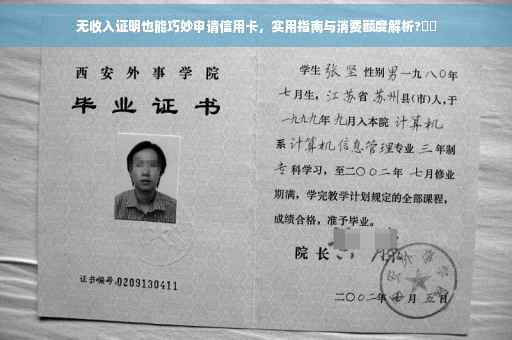 无收入证明也能巧妙申请信用卡，实用指南与消费额度解析?
西安外事学院
毕业证书
证书编号:0209130411
学生 张坚 性别男一九八〇年
七月生，江苏省苏州县(市)人,于
一九九九年九月入本院 计算机
系计算机信息管理专业 三年制
专科学习，至二〇〇二年 七月修业
期满，学完教学计划规定的全部课程，
成绩合格，准予毕业。
院长
二〇〇二年 月 五日